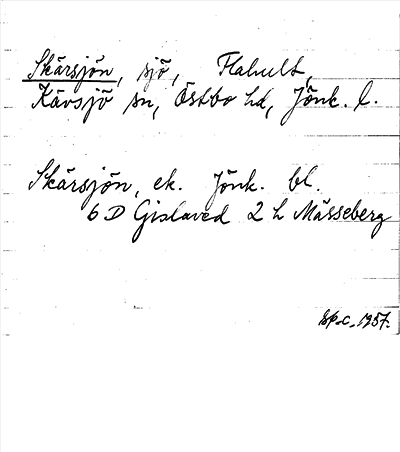 Skärsjön, sjö, Flahult,
Kävsjö sn, Östbo hd, Jönk. l.
Skärsjön, ek. Jönk. bl.
6 D Gislaved 2 h Mässeberg
sp.c. 1957.